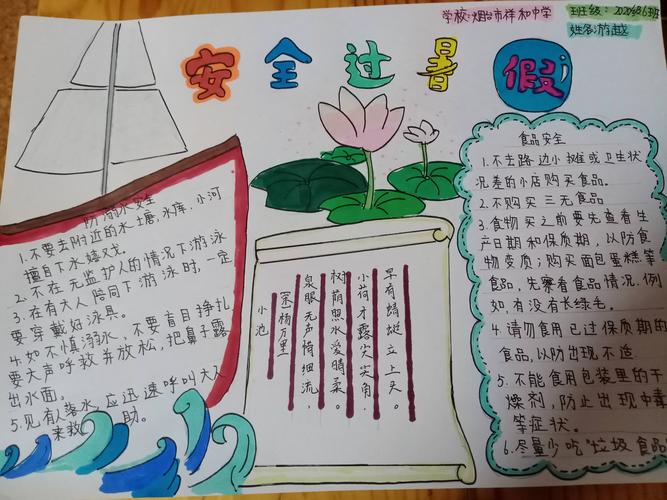 学校:烟台市祥和中学
班级:2020级6班
姓名:游越
安全过暑假
防溺水安全
1.不要去附近的水塘,水库,小河
擅自下水嬉戏。
2.不在无监护人的情况下游泳
3.在有大人陪同下游泳时,一定
要穿戴好泳具。
4.如不慎溺水、不要盲目挣扎
要大声呼救并放松,把鼻子露
出水面。
5.见有人落水,应迅速呼叫大人
来救助。
小池
[宋]杨万里
泉眼无声惜细流,
树荫照水爱晴柔。
小荷才露尖尖角,
早有蜻蜓立上头。
食品安全
1.不去路边小摊或卫生状
况差的小店购买食品。
2.不购买三无食品
3.食物买之前要先查看生
产日期和保质期,以防食
物变质;购买面包蛋糕等
食品,先察看食品情况.例
如,有没有长绿毛。
4.请勿食用已过保质期的
食品,以防出现不适.
5.不能食用包装里的干
燥剂,防止出现中毒
等症状。
6.尽量少吃“垃圾食品